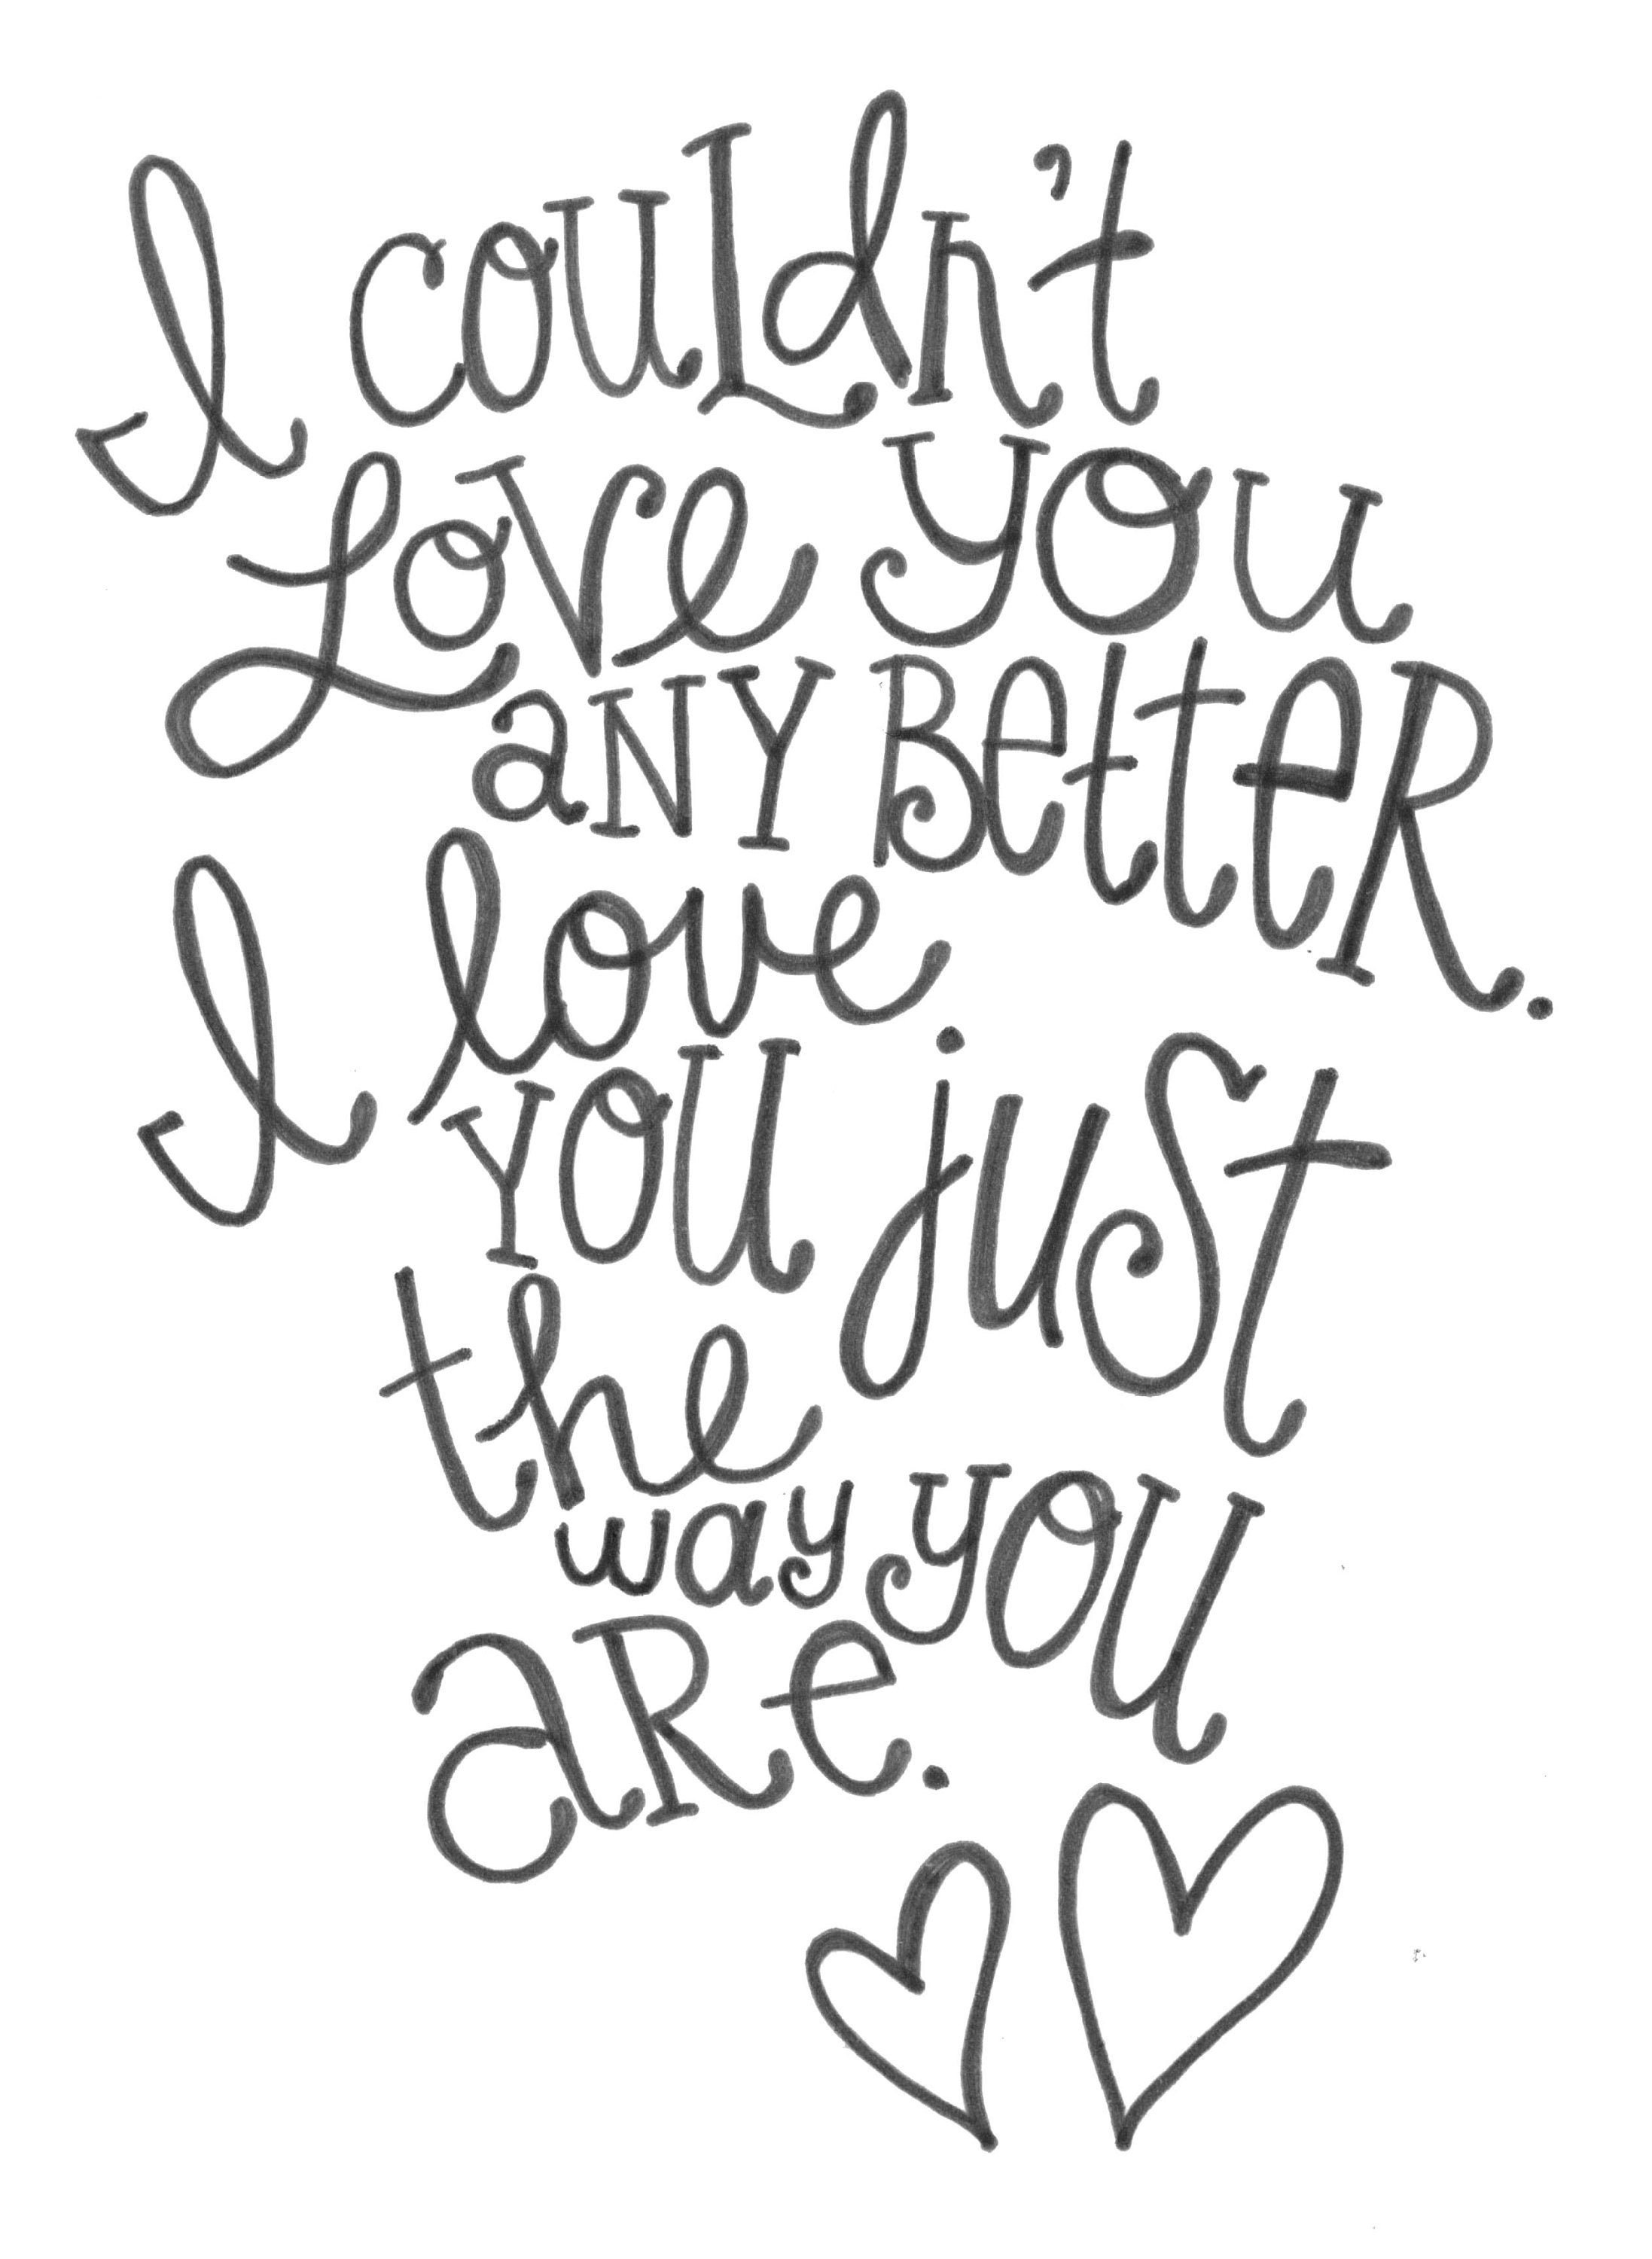 I couLdn't
Love you
aNY BetteR.
I love
YOU just
the
way you
aRe.